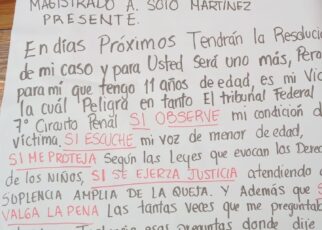 MAGISTRADO A. SOTO MARTINEZ
PRESENTE.
En días Próximos Tendrán la Resoluci
de mi caso y para Usted Será uno más, Pero
para mí que tengo 11 años de edad, es mi Vi
la cuál Peligra en tanto El tribunal Federal
7° Circuito Penal SI OBSERVE mi condición d
víctima, SI ESCUCHE mi voz de menor de edad,
SI ME PROTEJA Según las Leyes que evocan los Derec
de los NIÑOS, SI SE EJERZA JUSTICIA atendiendo
SUPLENCIA AMPLIA DE LA QUEJA. Y Además que S
VALGA LA PENA Las tantas veces que me preguntab
esas preguntas donde dije